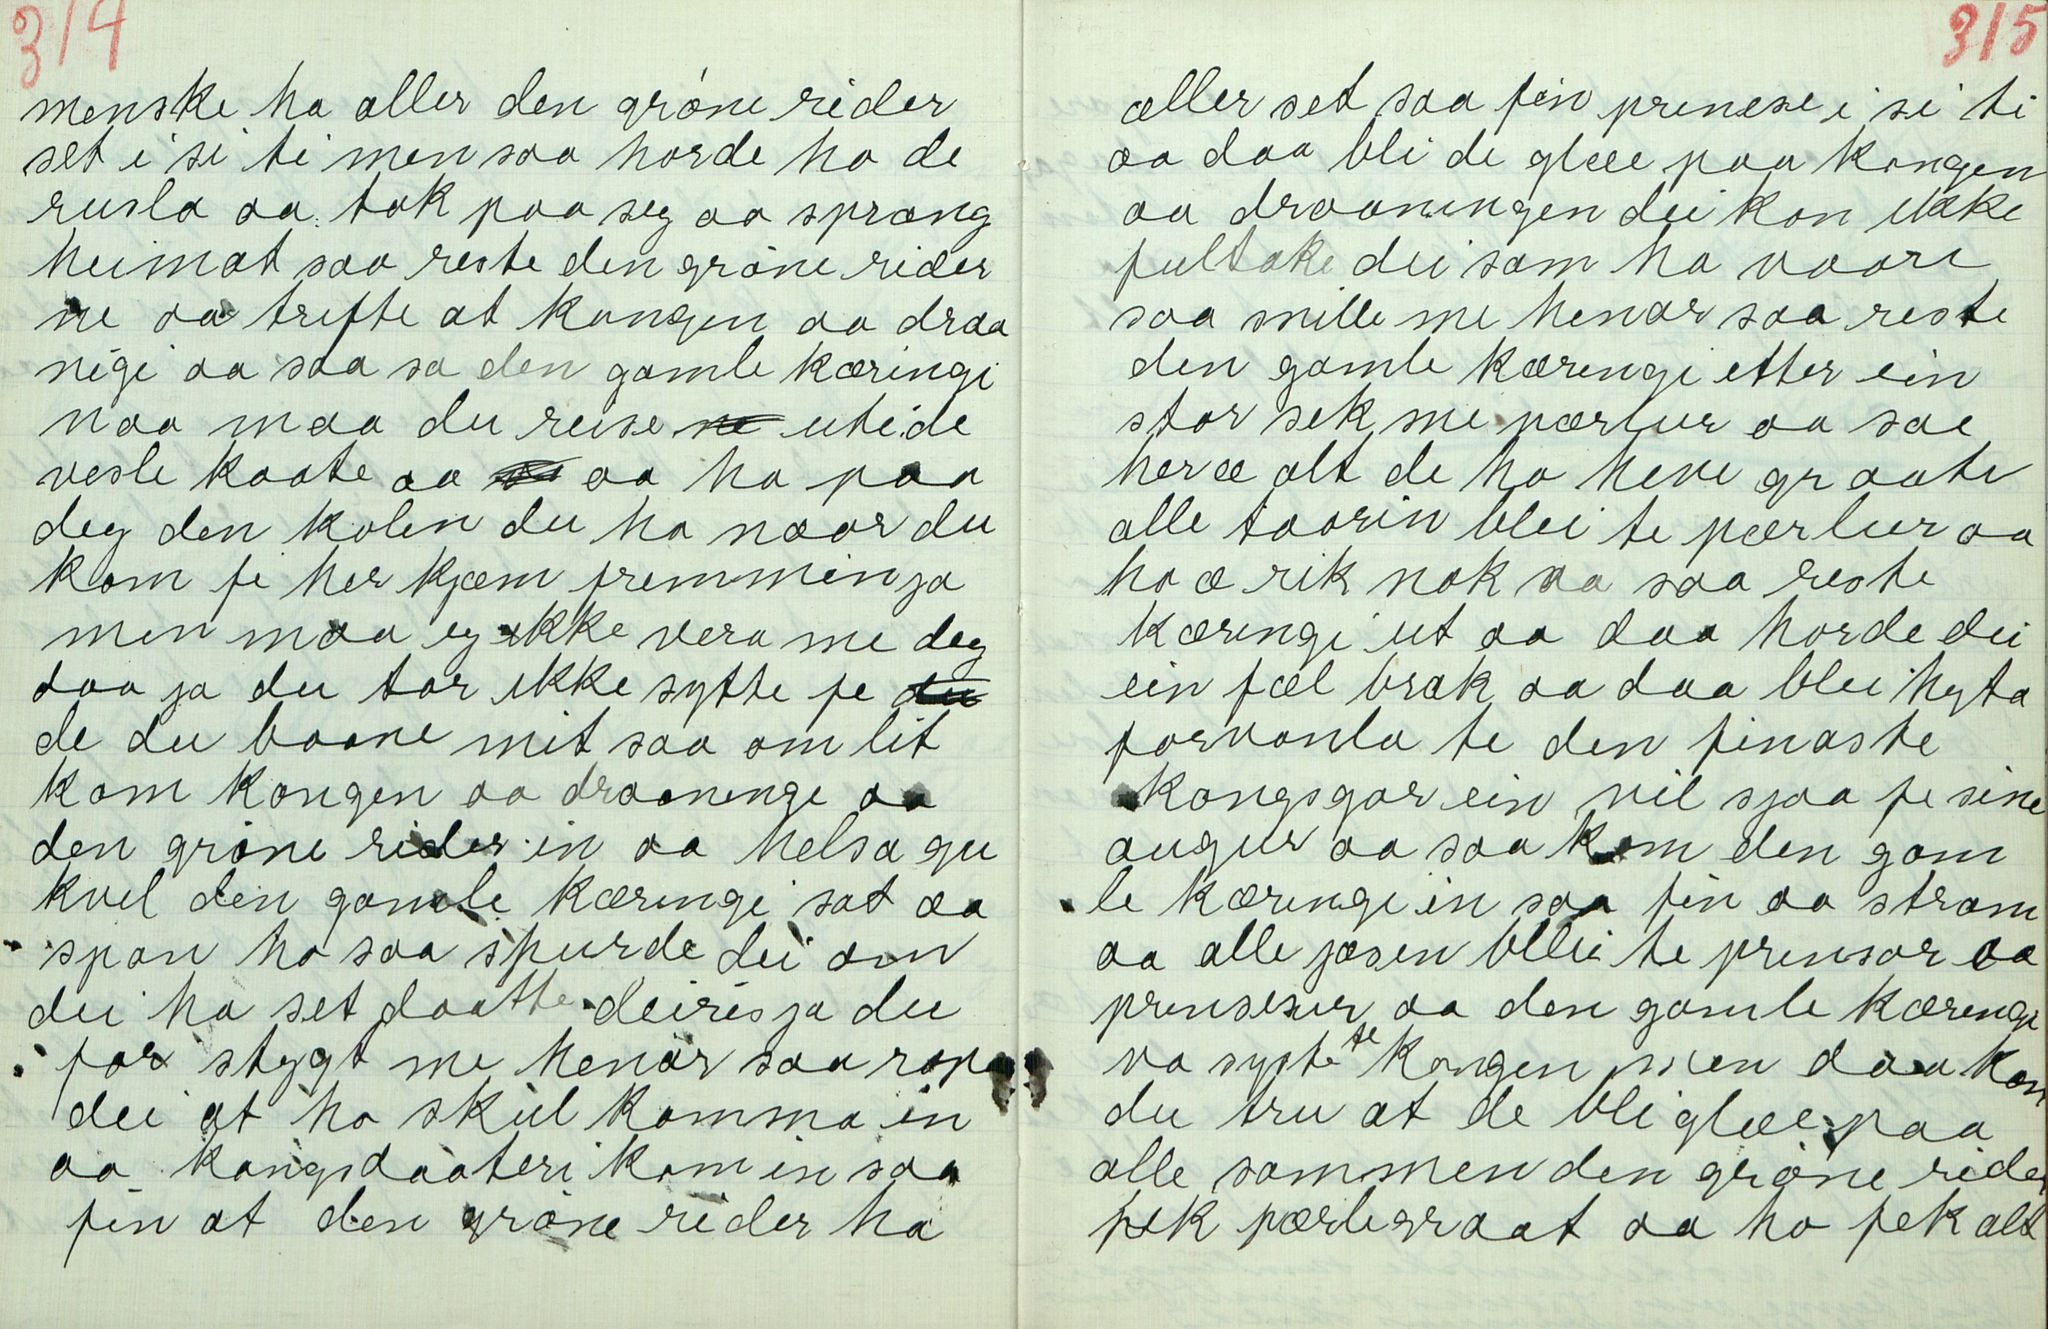 314
menske ha aller den gröne rider
set i si ti men saa horde ho de
rusla aa tok paa seg aa sprang
heimat saa reste den gröne rider
ne aa trefte at kongen aa draa
nigi aa saa sa den gamle kæringi
naa maa du reise uti de
vesle kaate aa aa ha paa
deg den kolen du ha naar du
kom fe her kjæm fremmin ja
men maa eg ikke vera me deg
daa ja du tar ikke sytte fe
de du baane mit saa om lit
kom kongen aa draaninge aa
den gröne rider in aa helsa gu
kvel den gamle kæringi sat aa
span ho saa spurde dei om
dei ha set daatte deiris ja du
for stygt me henar saa ropa
dei at ho skul komma in
aa kongsdaateri kom in saa
fin at den gröne rider ha
315
æller set saa fin prinsese i si ti
aa daa bli de glæe paa kongen
aa draaningen dei kon ikke
fultake dei som ha vaare
saa snille me henar saa reste
den gamle kæringi etter ein
stor sek me pærlur aa sae
her æ alt de ho heve graate
alle taarin blei te pærlur aa
ho æ rik nok aa saa reste
kæringi ut aa daa horde dei
ein fæl brak aa daa blei hyta
forvanla te den finaste
kongsgar ein vil sjaa fe sine
augur aa saa kom den gam
le kæringi in saa fin aa stram
aa alle jæsen blei te prinsar aa
prinsesur aa den gamle kæringi
va syste te kongen men daa kan
du tru at de bli glæe paa
alle sammen den gröne rider
fek pærlegraat aa ho fek alt